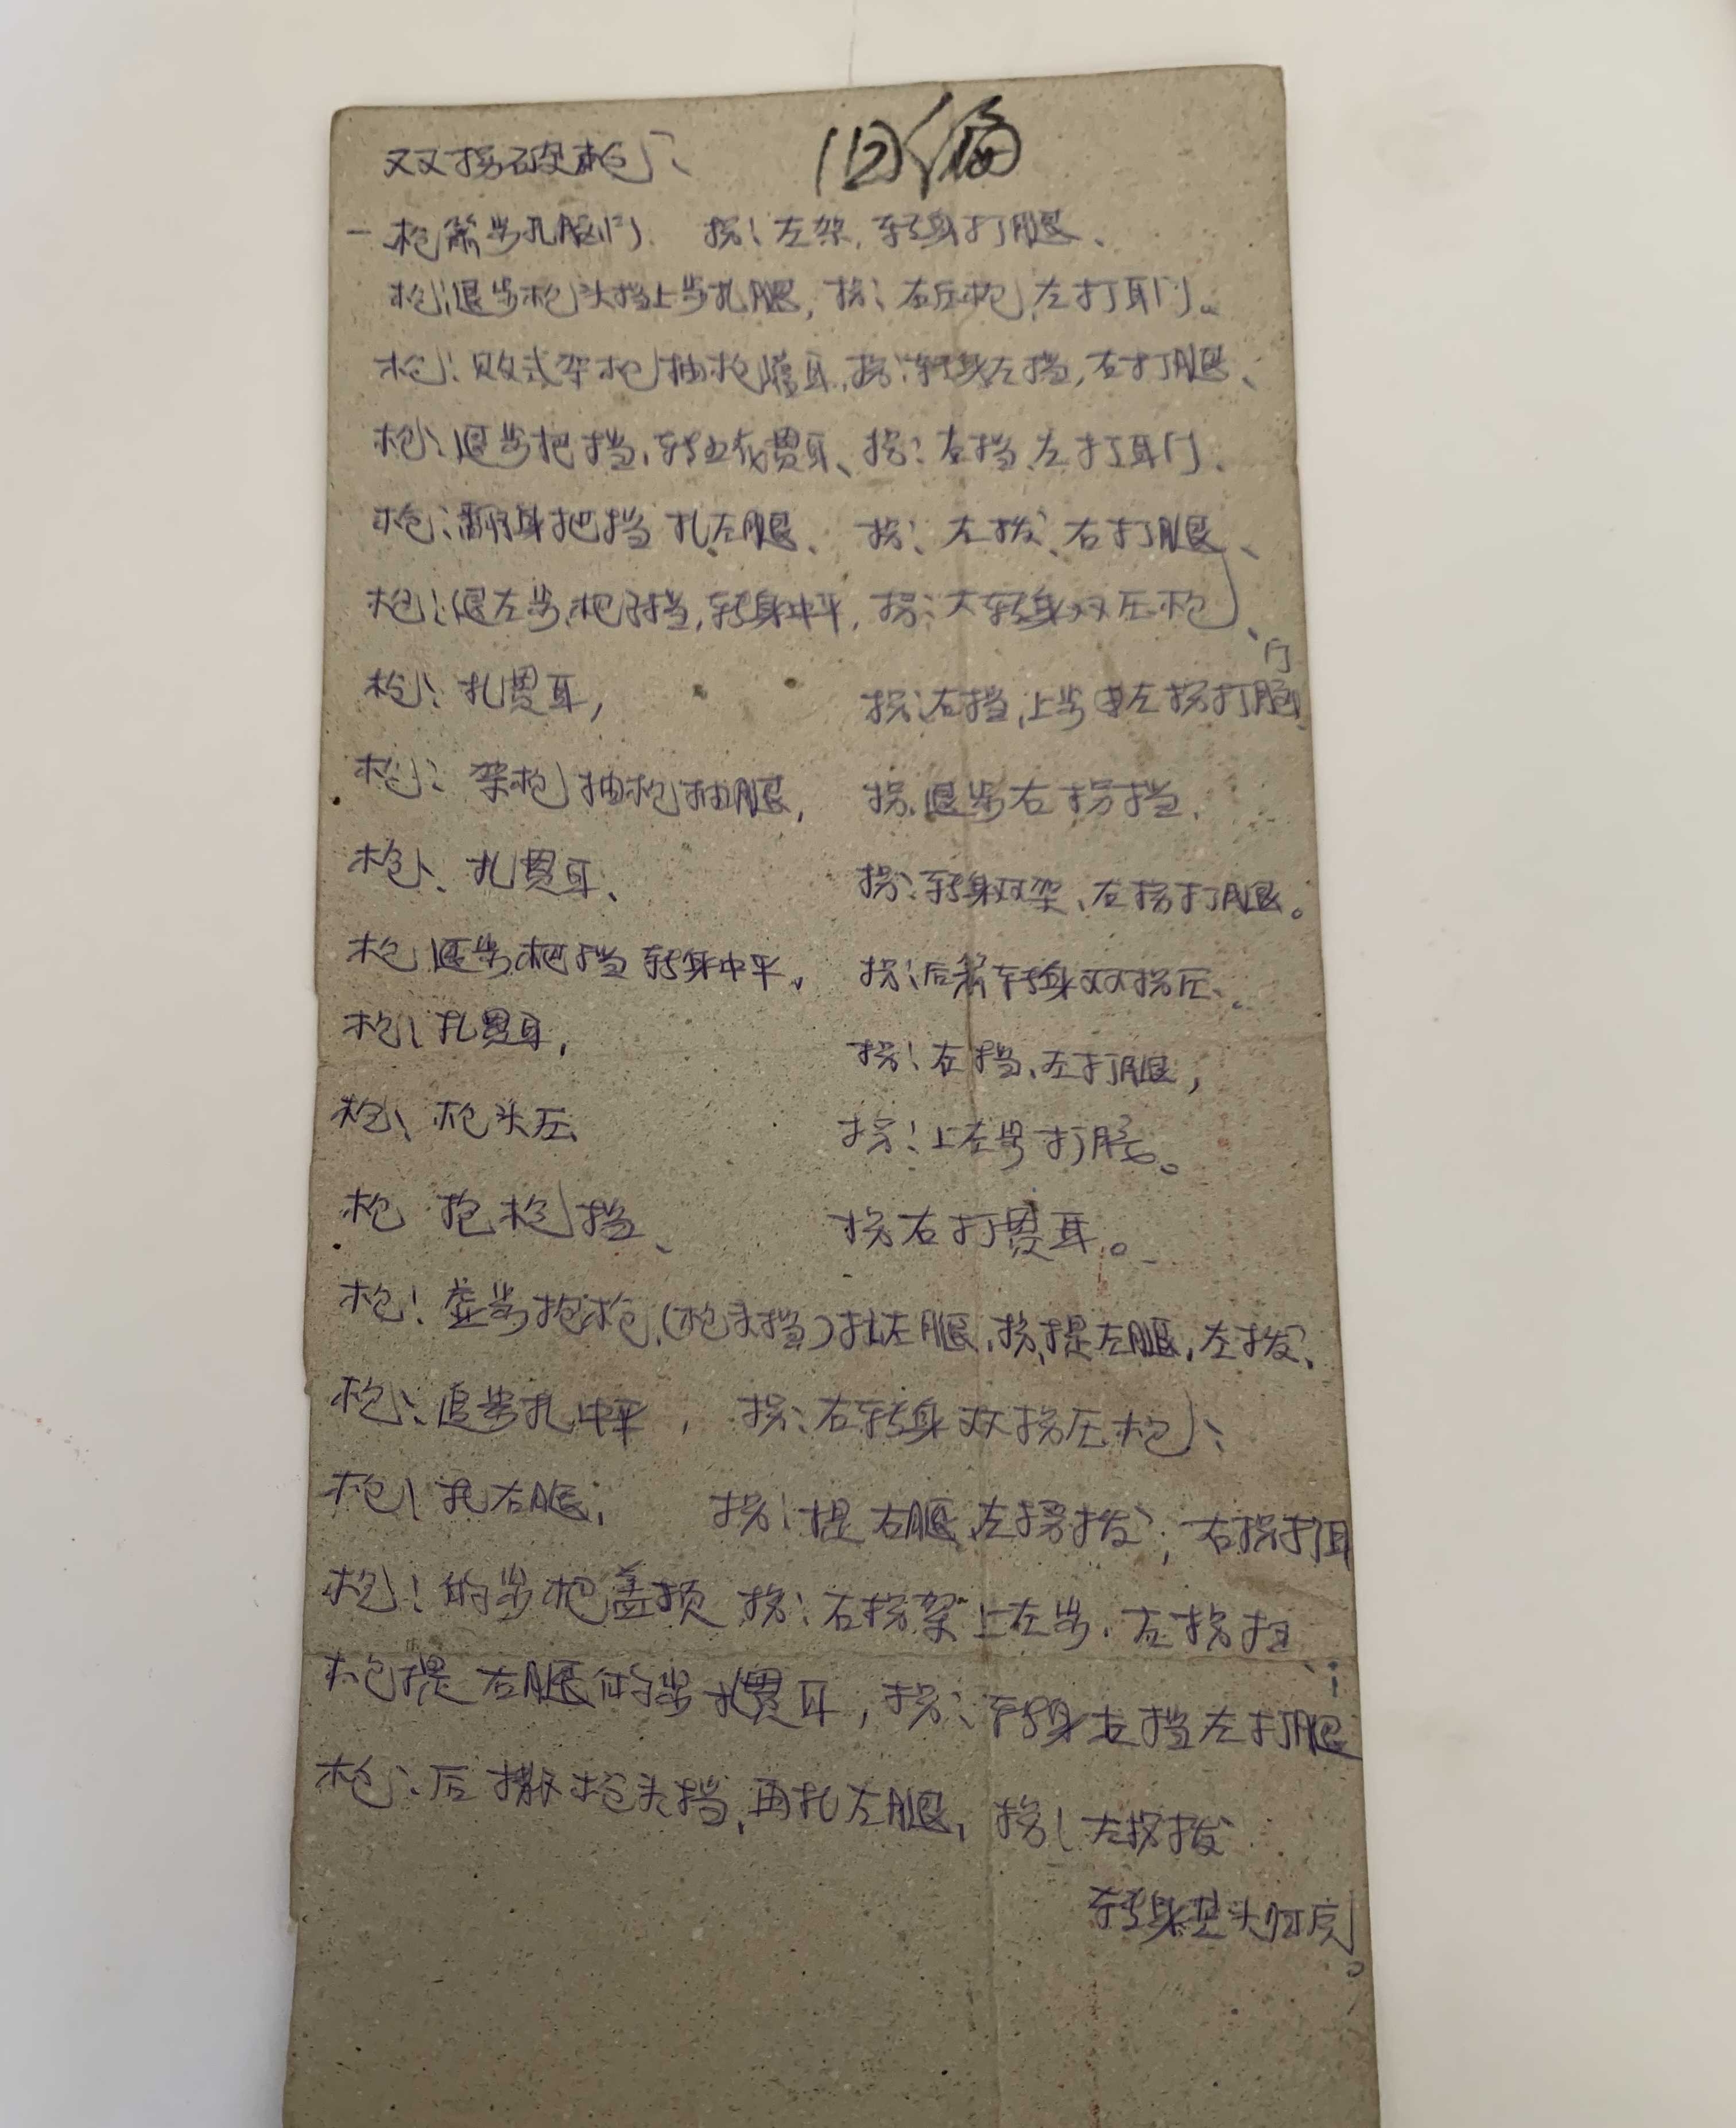 双拐破枪、
一枪箭步扎腿门. 拐：左架, 转身打腿、
枪：退步枪头挡上步扎腿, 拐：右压枪, 左打耳门。
枪：败式架枪抽枪贯耳, 拐：转身左挡, 右打腿、
枪：退步把挡, 转五花贯耳、拐：左挡、左打耳门、
枪：翻身把挡扎左腿、拐：左拨、右打腿、
枪：退左步, 把子挡, 转身中平, 拐：大转身双压枪、
枪：扎贯耳, 拐：右挡, 上步左拐打腿门
枪：架枪抽枪扎腿, 拐, 退步右拐挡,
枪、扎贯耳、 拐：转身双架、右拐打腿。
枪 退步, 把挡转身中平, 拐：后箭转身双拐压、
枪：扎贯耳, 拐：右挡、左打腿,
枪、枪头压、 拐：上左步打腿。
枪 抱枪挡、 拐右打贯耳。
枪：虚步抱枪,(枪头挡)扎左腿, 拐, 提左腿, 左拨、
枪：追步扎中平, 拐：右转身双拐压枪、
枪：扎右腿, 拐：提右腿, 左拐拨, 右拐打耳
枪：的步把盖顶 拐：右拐架上左步, 左拐扫
枪提右腿的步扎贯耳, 拐：转身左挡左打腿
枪：后撤枪头挡, 再扎左腿, 拐：左拐拨
转身 头